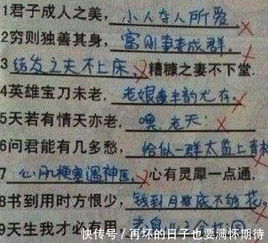 1君子成人之美,小人夺人所爱
2穷则独善其身,富则妻妾成群。
3结发之夫不上床,糟糠之妻不下堂.
4英雄宝刀未老.老娘风韵尤存.
5天若有情天亦老,嘿,老天!
6问君能有几多愁,恰似一群太监上青楼
7心肌梗塞遇神医,心有灵犀一点通,
8书到用时方恨少,钱到月底不够花,
9天生我才必有用,
快传号/再坏的日子也要满怀期待